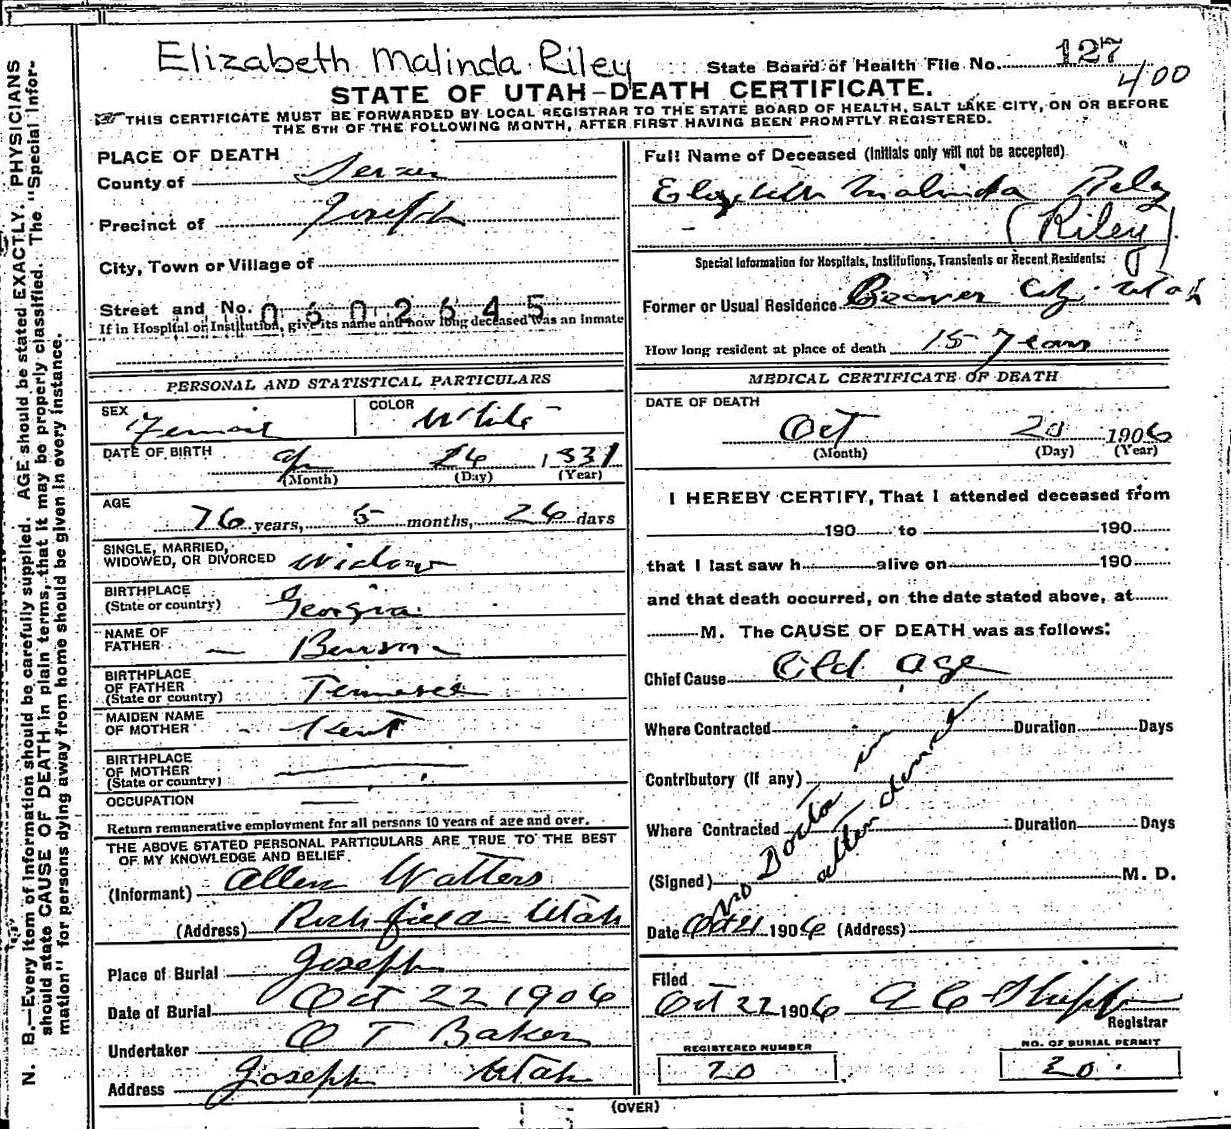 Elizabeth Malinda Riley
State Board of Health File No. 127
400
STATE OF UTAH—DEATH CERTIFICATE.
THIS CERTIFICATE MUST BE FORWARDED BY LOCAL REGISTRAR TO THE STATE BOARD OF HEALTH, SALT LAKE CITY, ON OR BEFORE
THE 5TH OF THE FOLLOWING MONTH, AFTER FIRST HAVING BEEN PROMPTLY REGISTERED.
N. B.—Every item of information should be carefully supplied. AGE should be stated EXACTLY. PHYSICIANS
should state CAUSE OF DEATH in plain terms, that it may be properly classified. The "Special Infor-
mation" for persons dying away from home should be given in every instance.
PLACE OF DEATH
County of Sevier
Precinct of Joseph
City, Town or Village of
Street and No. 0602645
If in Hospital or Institution, give its name and how long deceased was an Inmate
PERSONAL AND STATISTICAL PARTICULARS
SEX Female COLOR White
DATE OF BIRTH
(Month) (Day) (Year)
AGE
76 years, 5 months, 26 days
SINGLE, MARRIED,
WIDOWED, OR DIVORCED Widow
BIRTHPLACE
(State or country) Georgia
NAME OF
FATHER — Benson
BIRTHPLACE
OF FATHER
(State or country) Tennessee
MAIDEN NAME
OF MOTHER - Kent
BIRTHPLACE
OF MOTHER
(State or country)
OCCUPATION
Return remunerative employment for all persons 10 years of age and over.
THE ABOVE STATED PERSONAL PARTICULARS ARE TRUE TO THE BEST
OF MY KNOWLEDGE AND BELIEF
(Informant) Allen Watters
(Address) Richfield Utah
Place of Burial Joseph
Date of Burial Oct 22 1906
Undertaker O T Baker
Address Joseph Utah
Full Name of Deceased (Initials only will not be accepted)
Elizabeth Malinda Riley
(Riley)
Special Information for Hospitals, Institutions, Transients or Recent Residents:
Former or Usual Residence Beaver City Utah
How long resident at place of death 15 years
MEDICAL CERTIFICATE OF DEATH
DATE OF DEATH
Oct 20 1906
(Month) (Day) (Year)
I HEREBY CERTIFY, That I attended deceased from
190 to 190
that I last saw h alive on 190
and that death occurred, on the date stated above, at
M. The CAUSE OF DEATH was as follows:
Chief Cause Old age
Where Contracted Duration Days
Contributory (if any)
Where Contracted Duration Days
(Signed) M. D.
no Doctor in
attendence
Date Oct 21 1906 (Address)
Filed
Oct 22 1906
Registrar
REGISTERED NUMBER
20
NO. OF BURIAL PERMIT
20
(OVER)